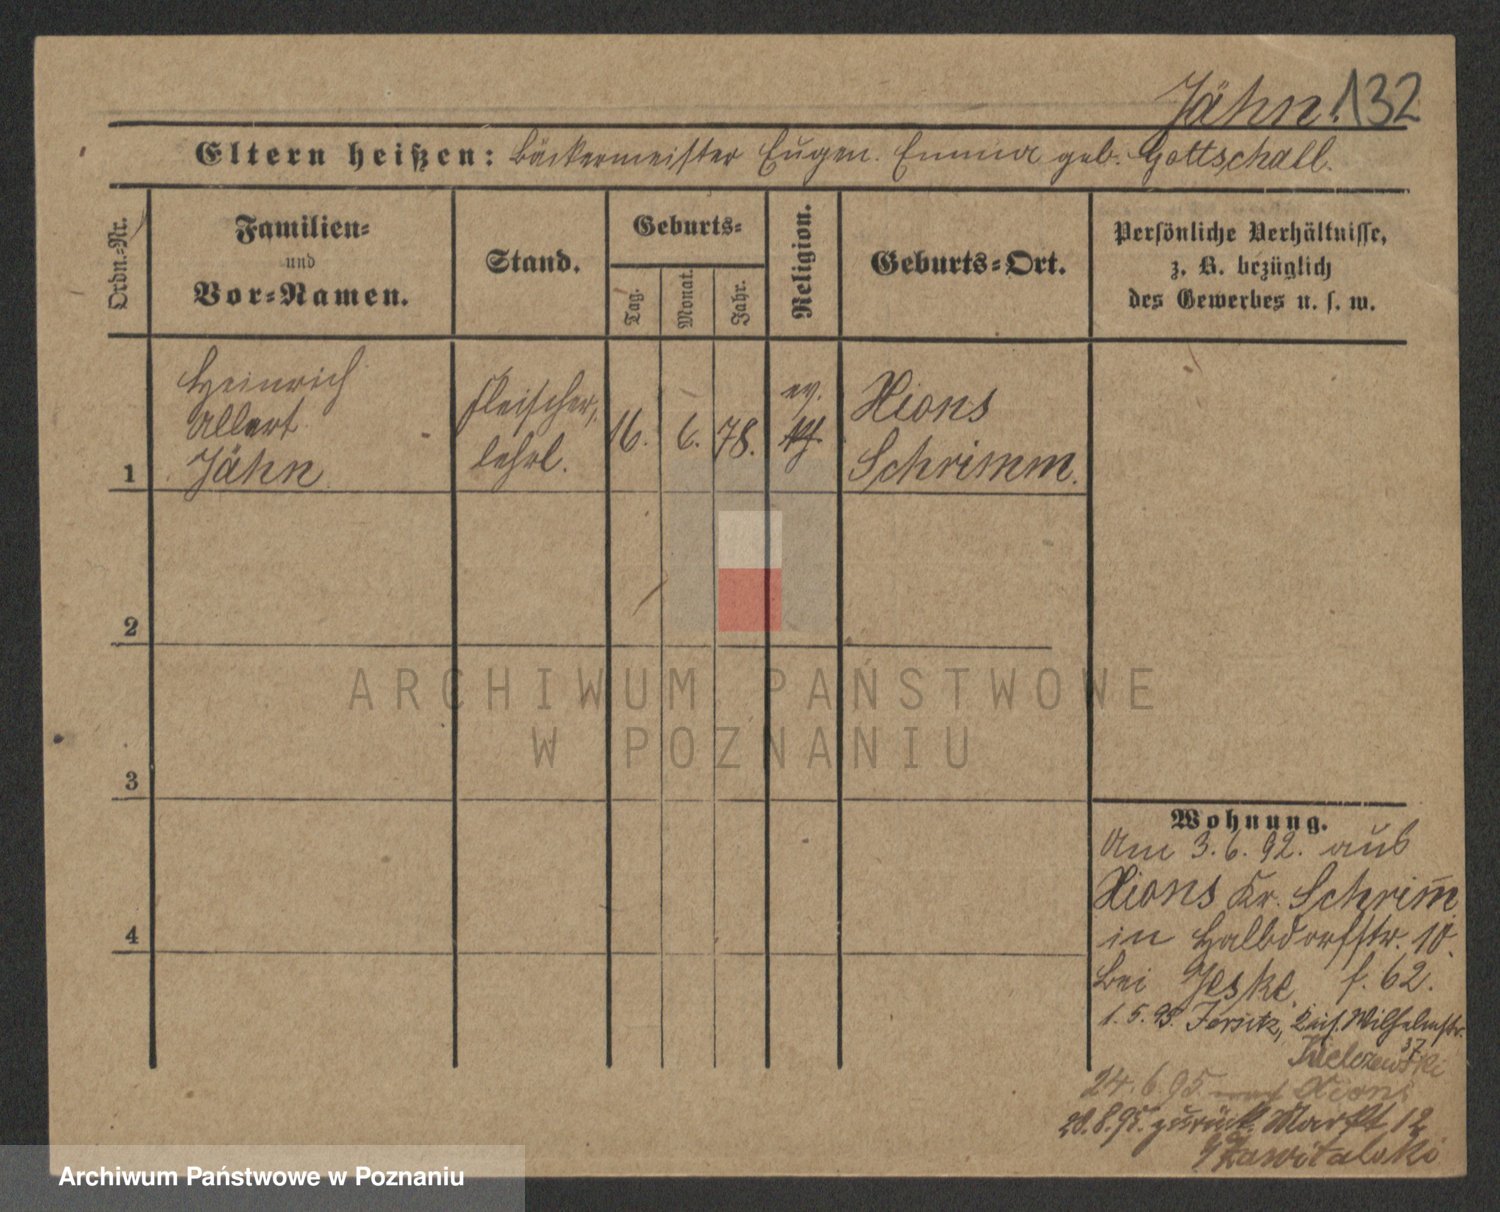 Jähn. 132
Eltern heißen: Bäckermeister Eugen. Emma geb. Gottschall.
Ordn.-Nr.
Familien-
und
Vor-Namen.
Stand.
Geburts-
Tag.
Monat.
Jahr.
Religion.
Geburts-Ort.
Persönliche Verhältnisse,
z. B. bezüglich
des Gewerbes u. s. w.
1
Heinrich
Albert
Jähn
Fleischer
lehrl.
16. 6. 78.
ev.
Xions
Schrimm.
2
3
4
Wohnung.
Am 3. 6. 92. aus
Xions Kr. Schrim̄
in Halbdorfstr. 10.
bei Jeske. f. 62.
1. 5. 95. Jersitz, Wilhelmstr.
37
24. 6. 95. nach Xions
28. 8. 95. zurück Markt 12
ARCHIWUM PAŃSTWOWE
W POZNANIU
Archiwum Państwowe w Poznaniu